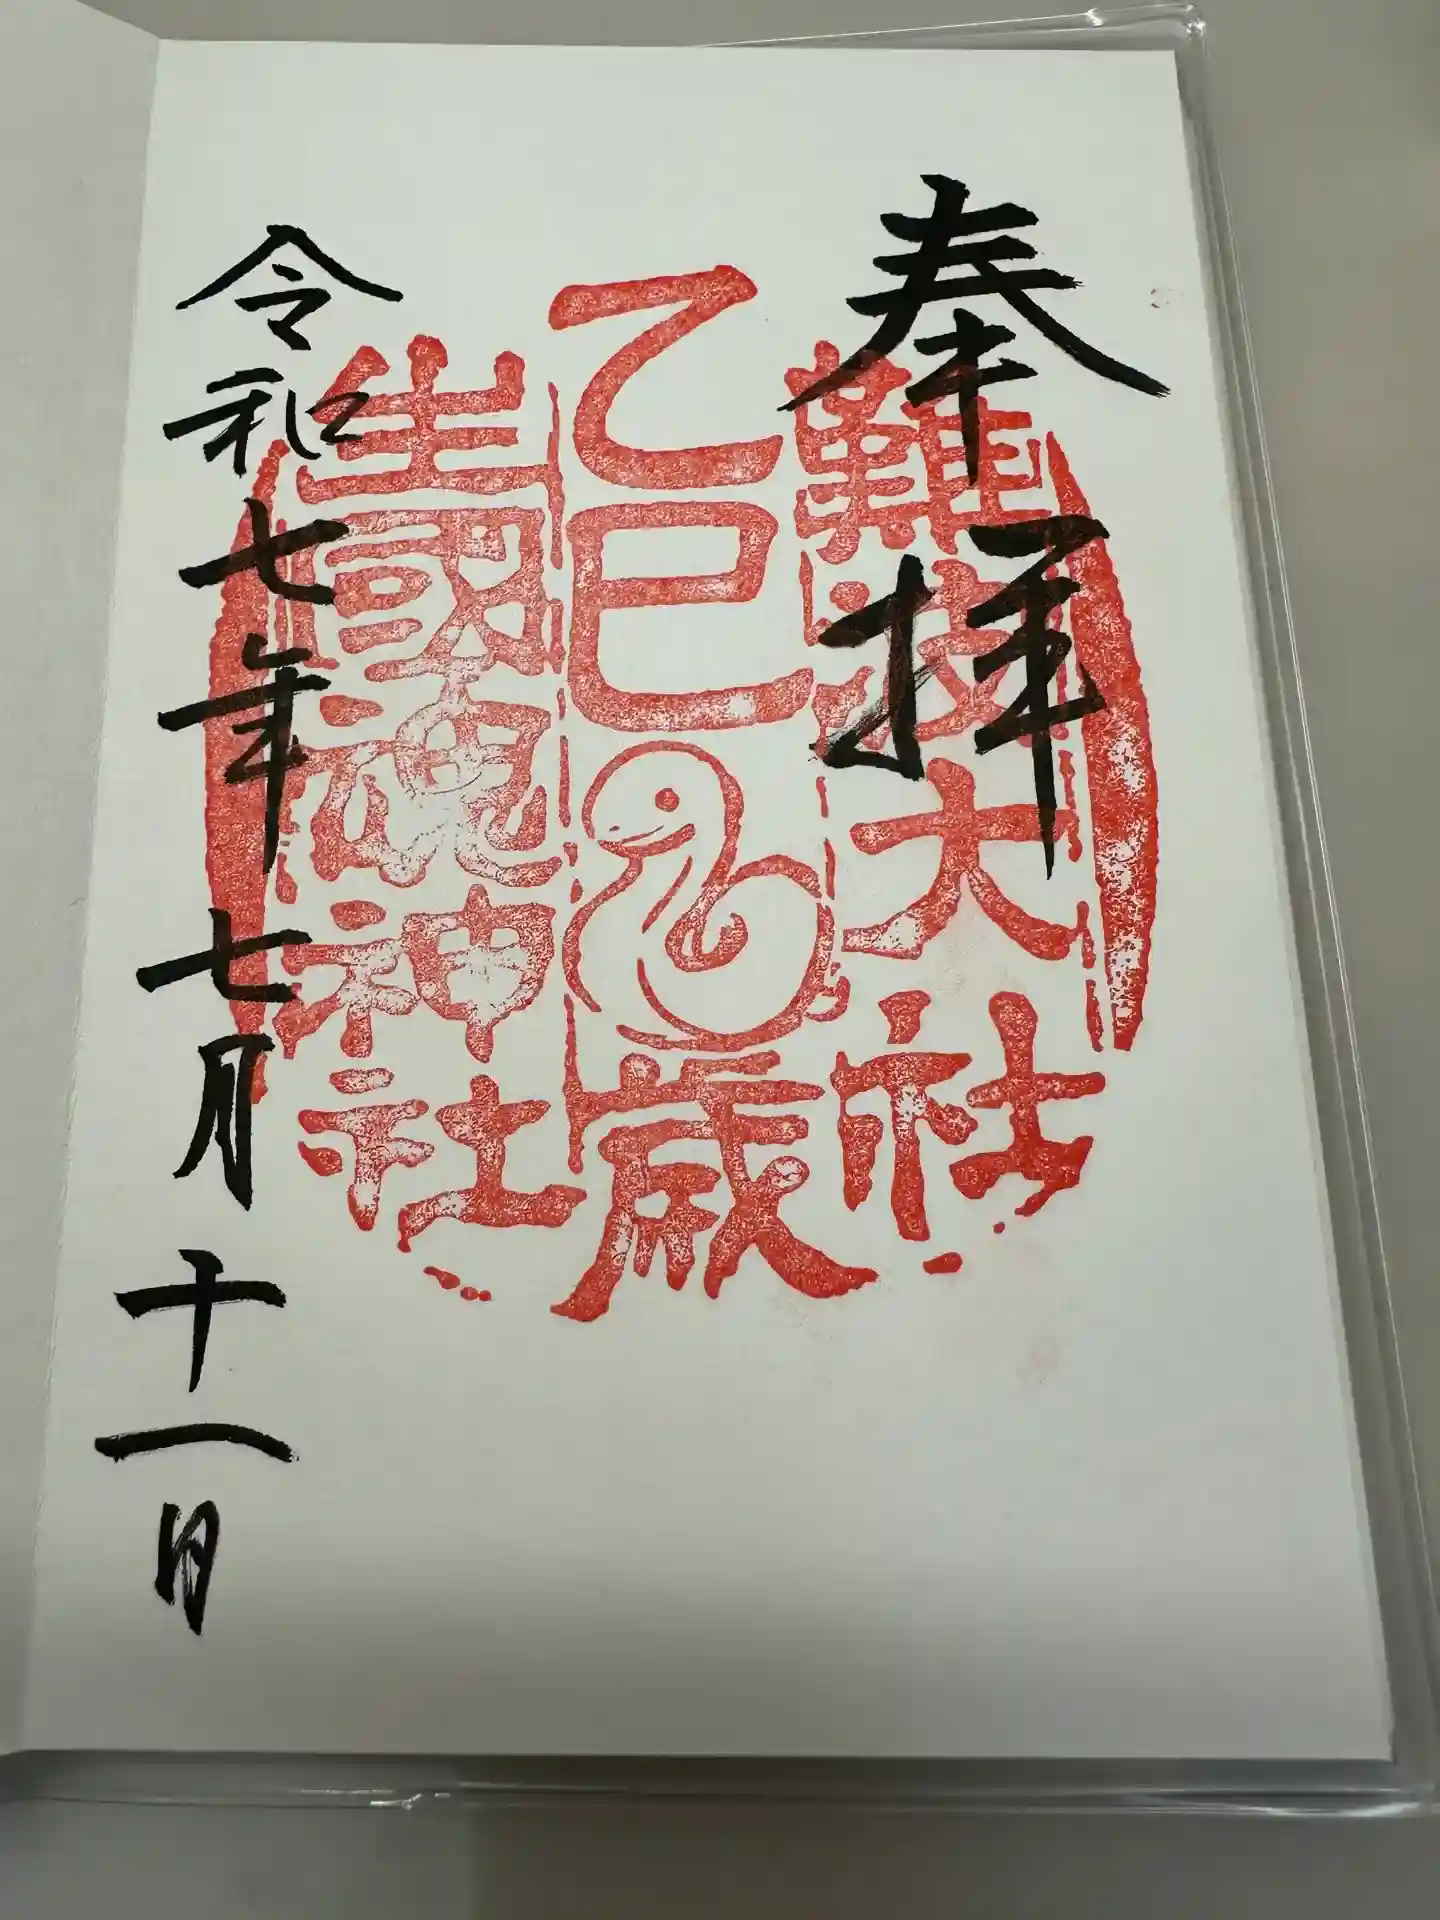 奉拝
難波大社
乙巳歳
生國魂神社
令和七年七月十一日